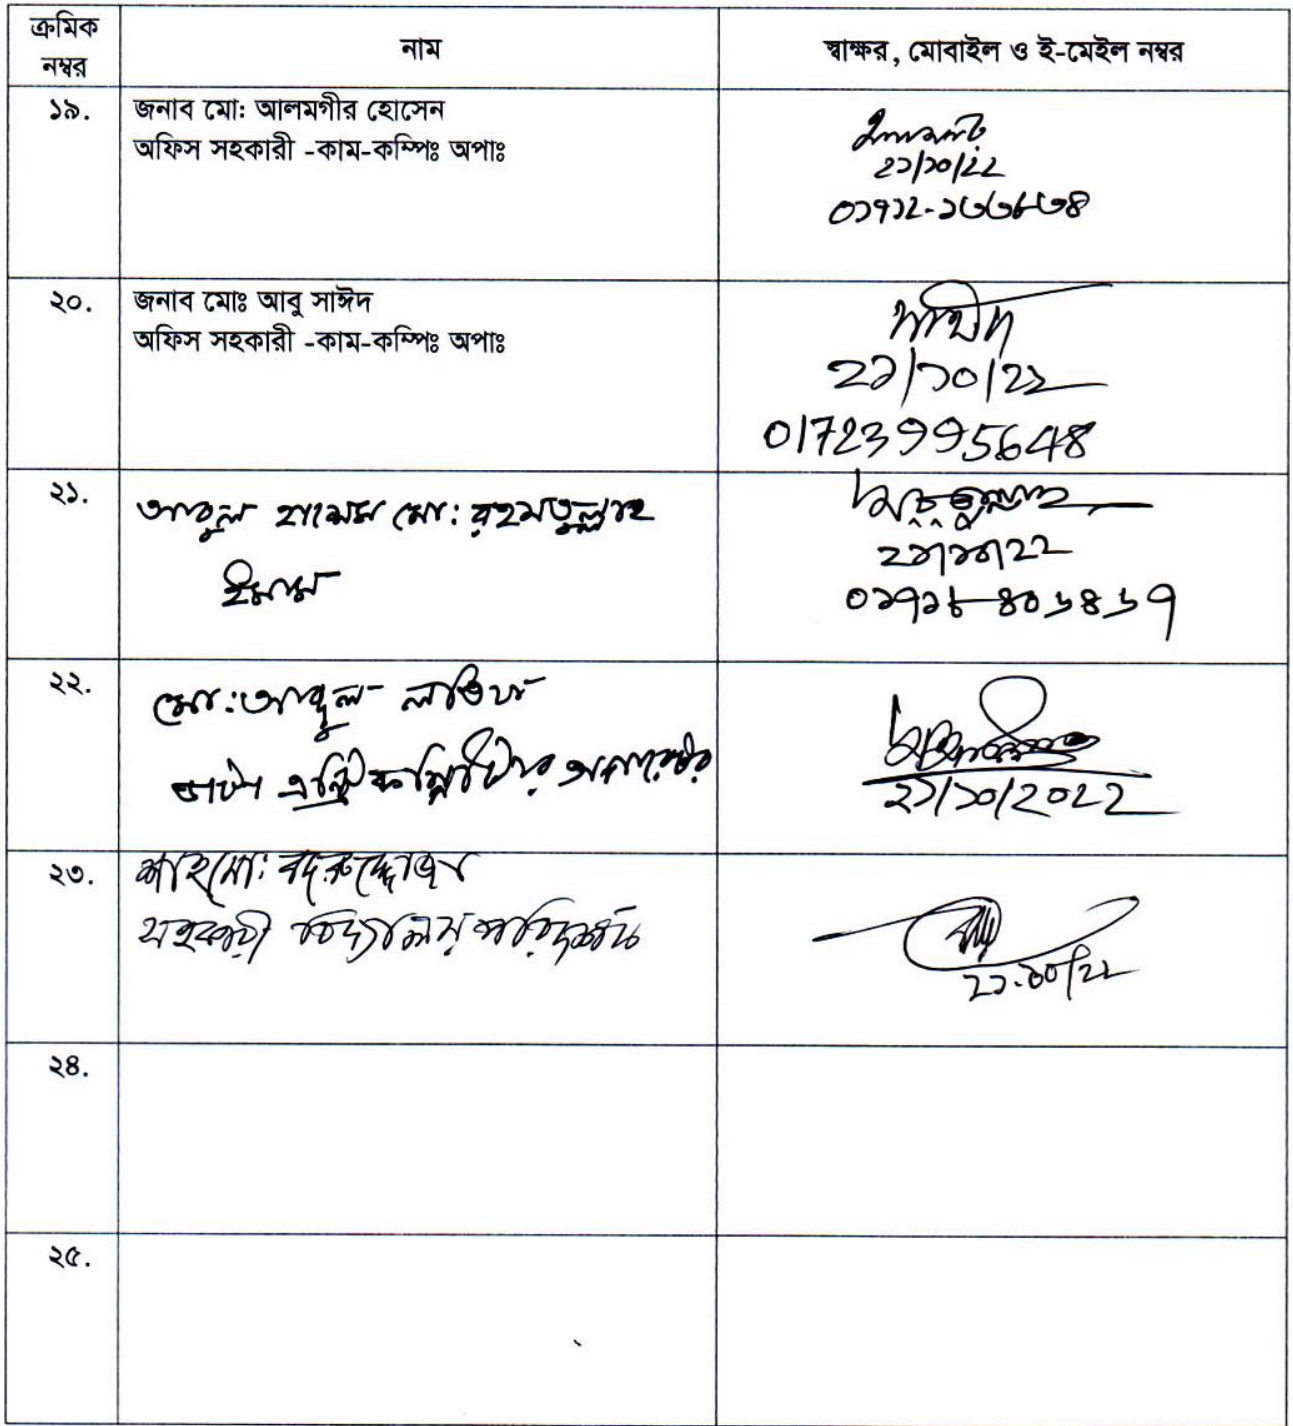 ক্রমিক নম্বর
নাম
স্বাক্ষর, মোবাইল ও ই-মেইল নম্বর
১৯.
জনাব মো: আলমগীর হোসেন
অফিস সহকারী -কাম-কম্পিঃ অপাঃ
২১/১০/২২
২০.
জনাব মোঃ আবু সাঈদ
অফিস সহকারী -কাম-কম্পিঃ অপাঃ
সাঈদ
২১/১০/২২
01723995648
২১.
আবুল হাসেম মো: রহমতুল্লাহ
ইমাম
২১/১০/২২
০১৭১৮-৪০৬৪৬৭
২২.
মো: আব্দুল লতিফ
ডাটা এন্ট্রি কম্পিউটার অপারেটর
২১/১০/2022
২৩.
শাহ মো: বদরুদ্দোজা
সহকারী বিদ্যালয় পরিদর্শক
২১.১০/২২
২৪.
২৫.